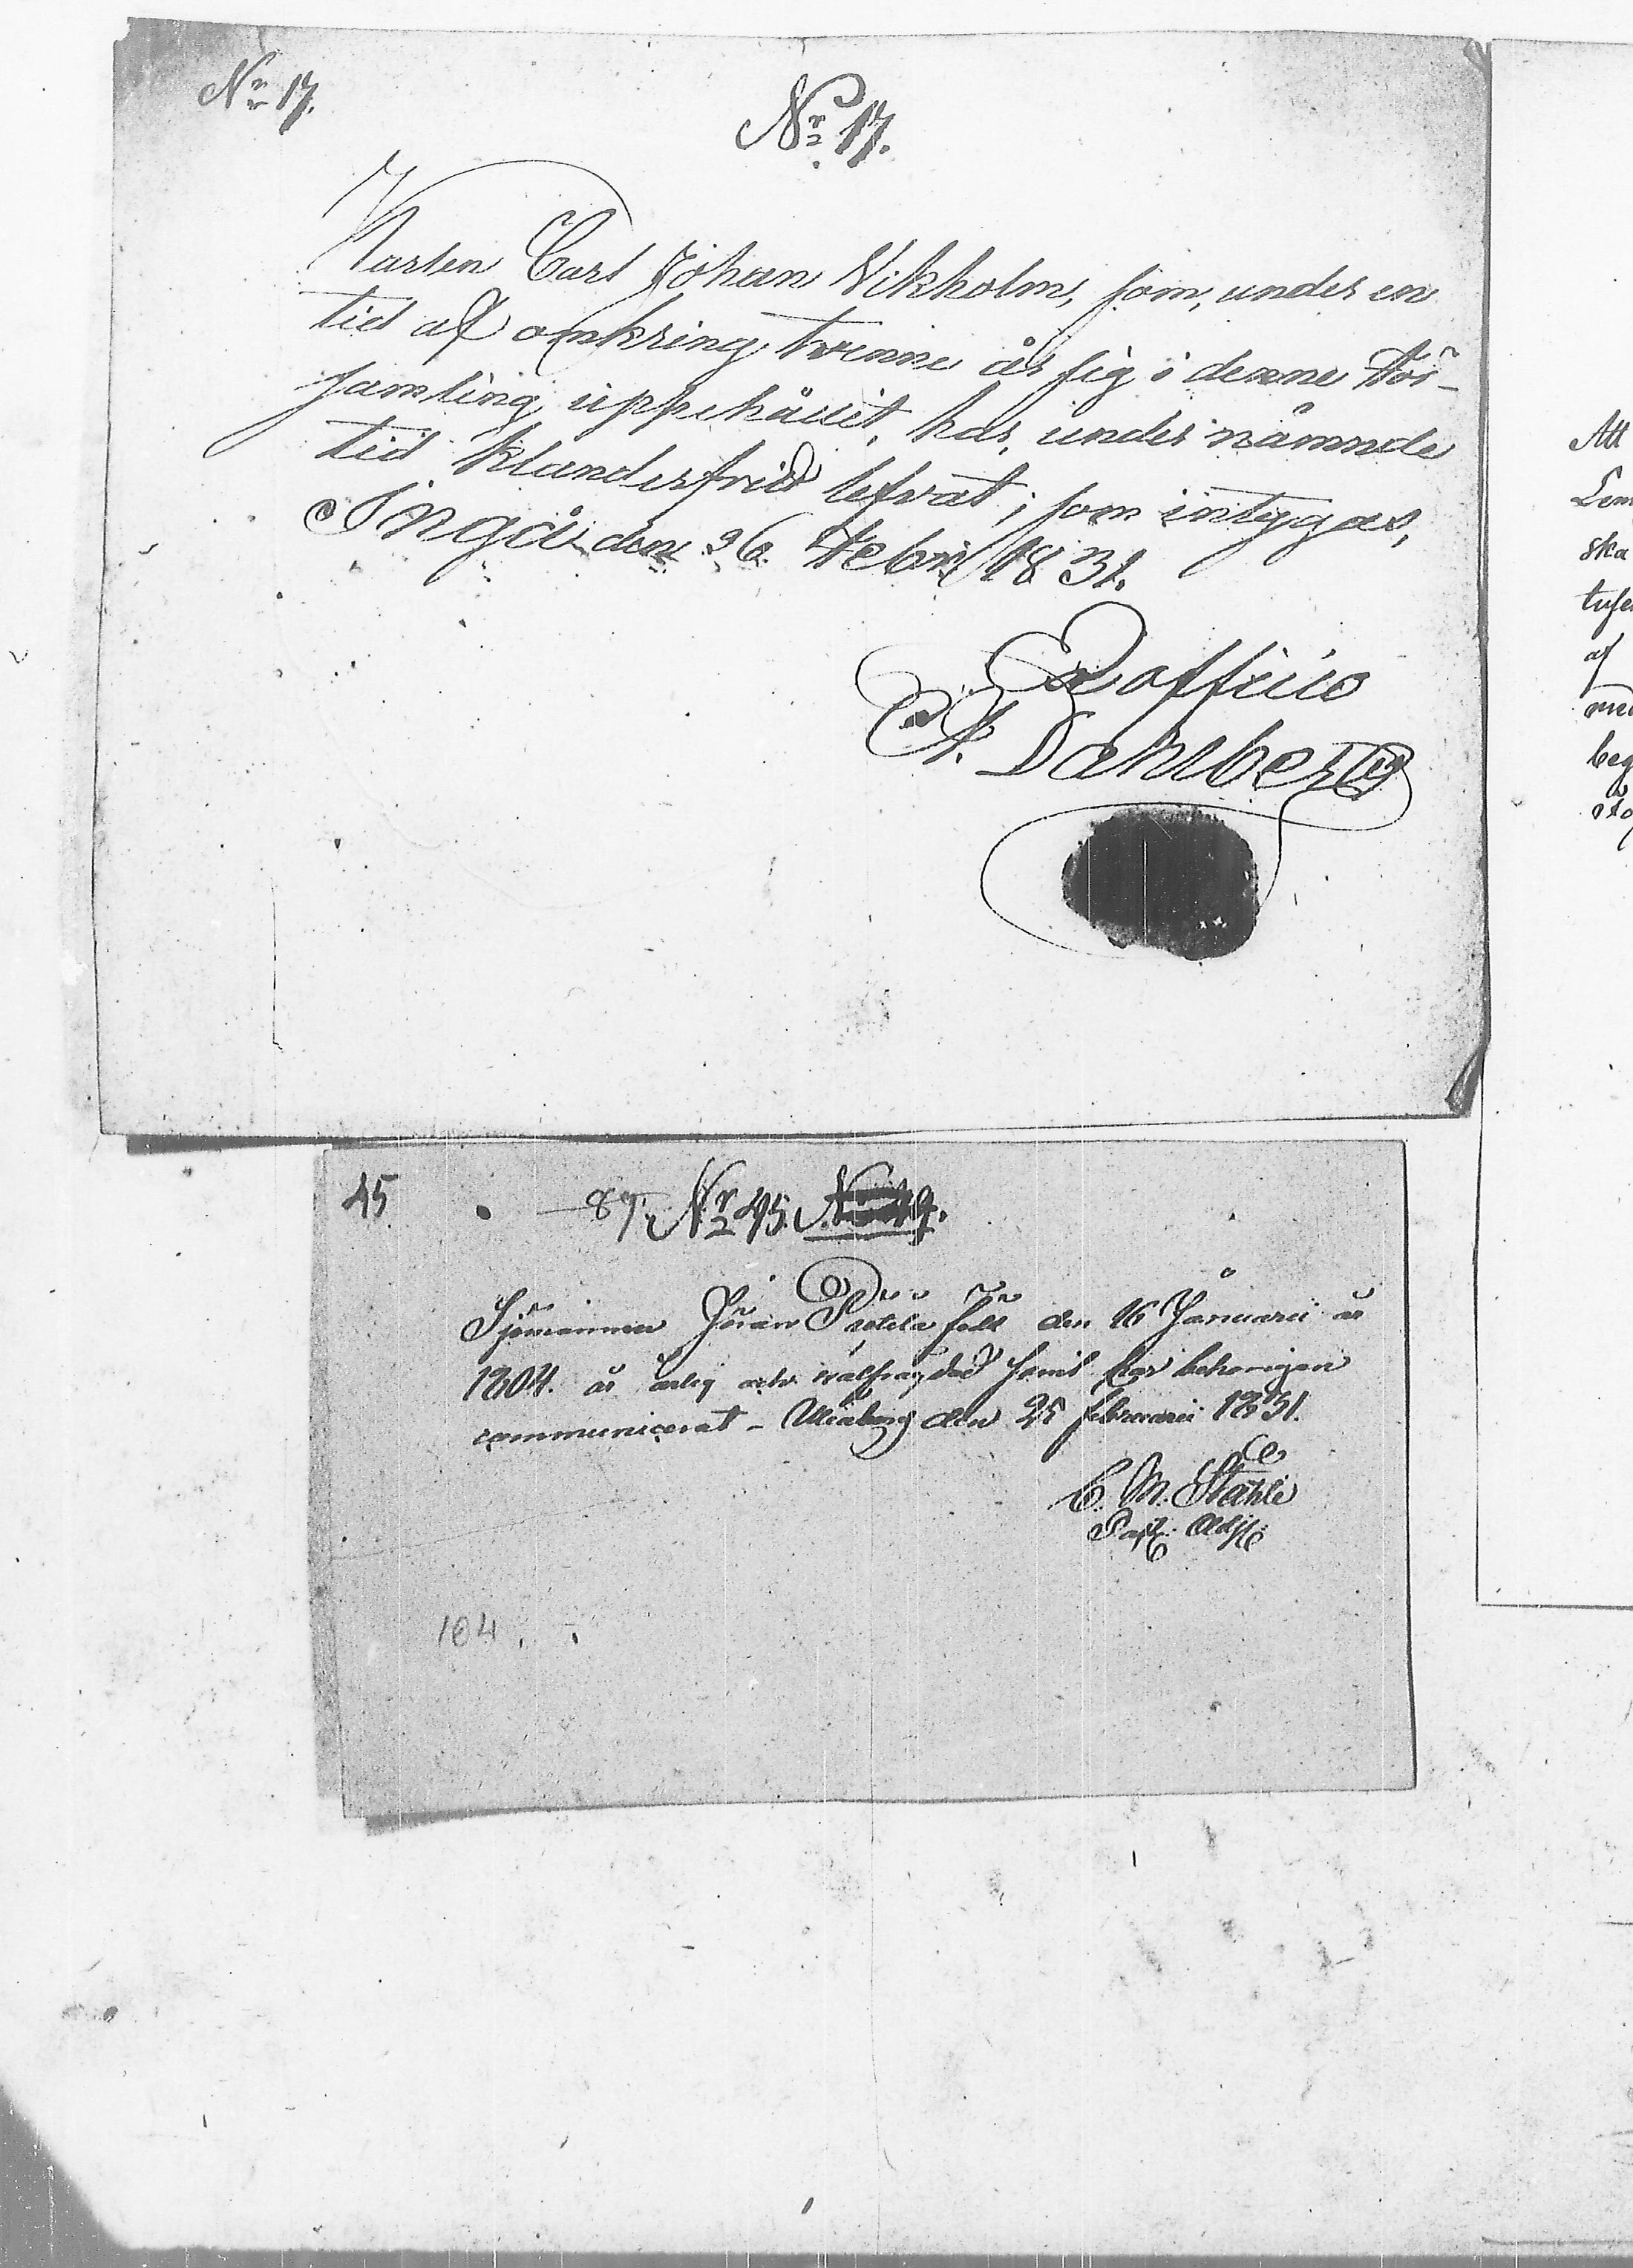 Nr 17.
Nr 17.
Karlen Carl Johan Vikholm, som, under en
tid af omkring tvenne år sig i denne För-
samling uppehållit, har, under nämnde
tid klanderfritt lefvat; som intygas,
Ingå den 26. Febr: 1831.
Ex officio
A. Dahlberg
45
87. Nr 45.
Sjömannen Jöran född den 16 Januarii år
1804. är ärlig och välfrägdad samt har behörigen
communicerat - Uleåborg den 25 februarii 1831.
C. M. Ståhle
Past: Adj:
104.
Att
Lem
ska
tuse
af
med
beg